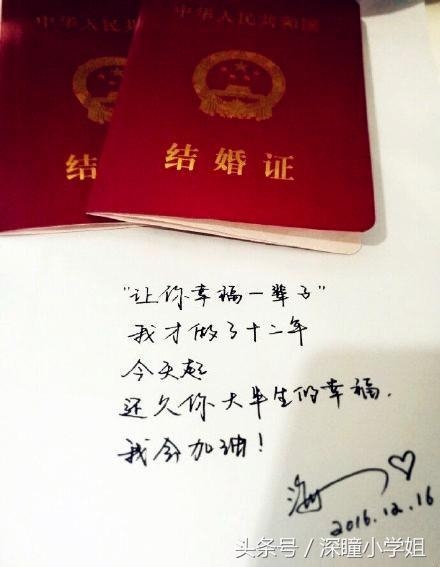 中华人民共和国
中华人民共和国
结婚证
结婚证
"让你幸福一辈子"
我才做了十二年
今天起
还欠你大半生的幸福.
我会加油!
2016.12.16
头条号/深瞳小学姐